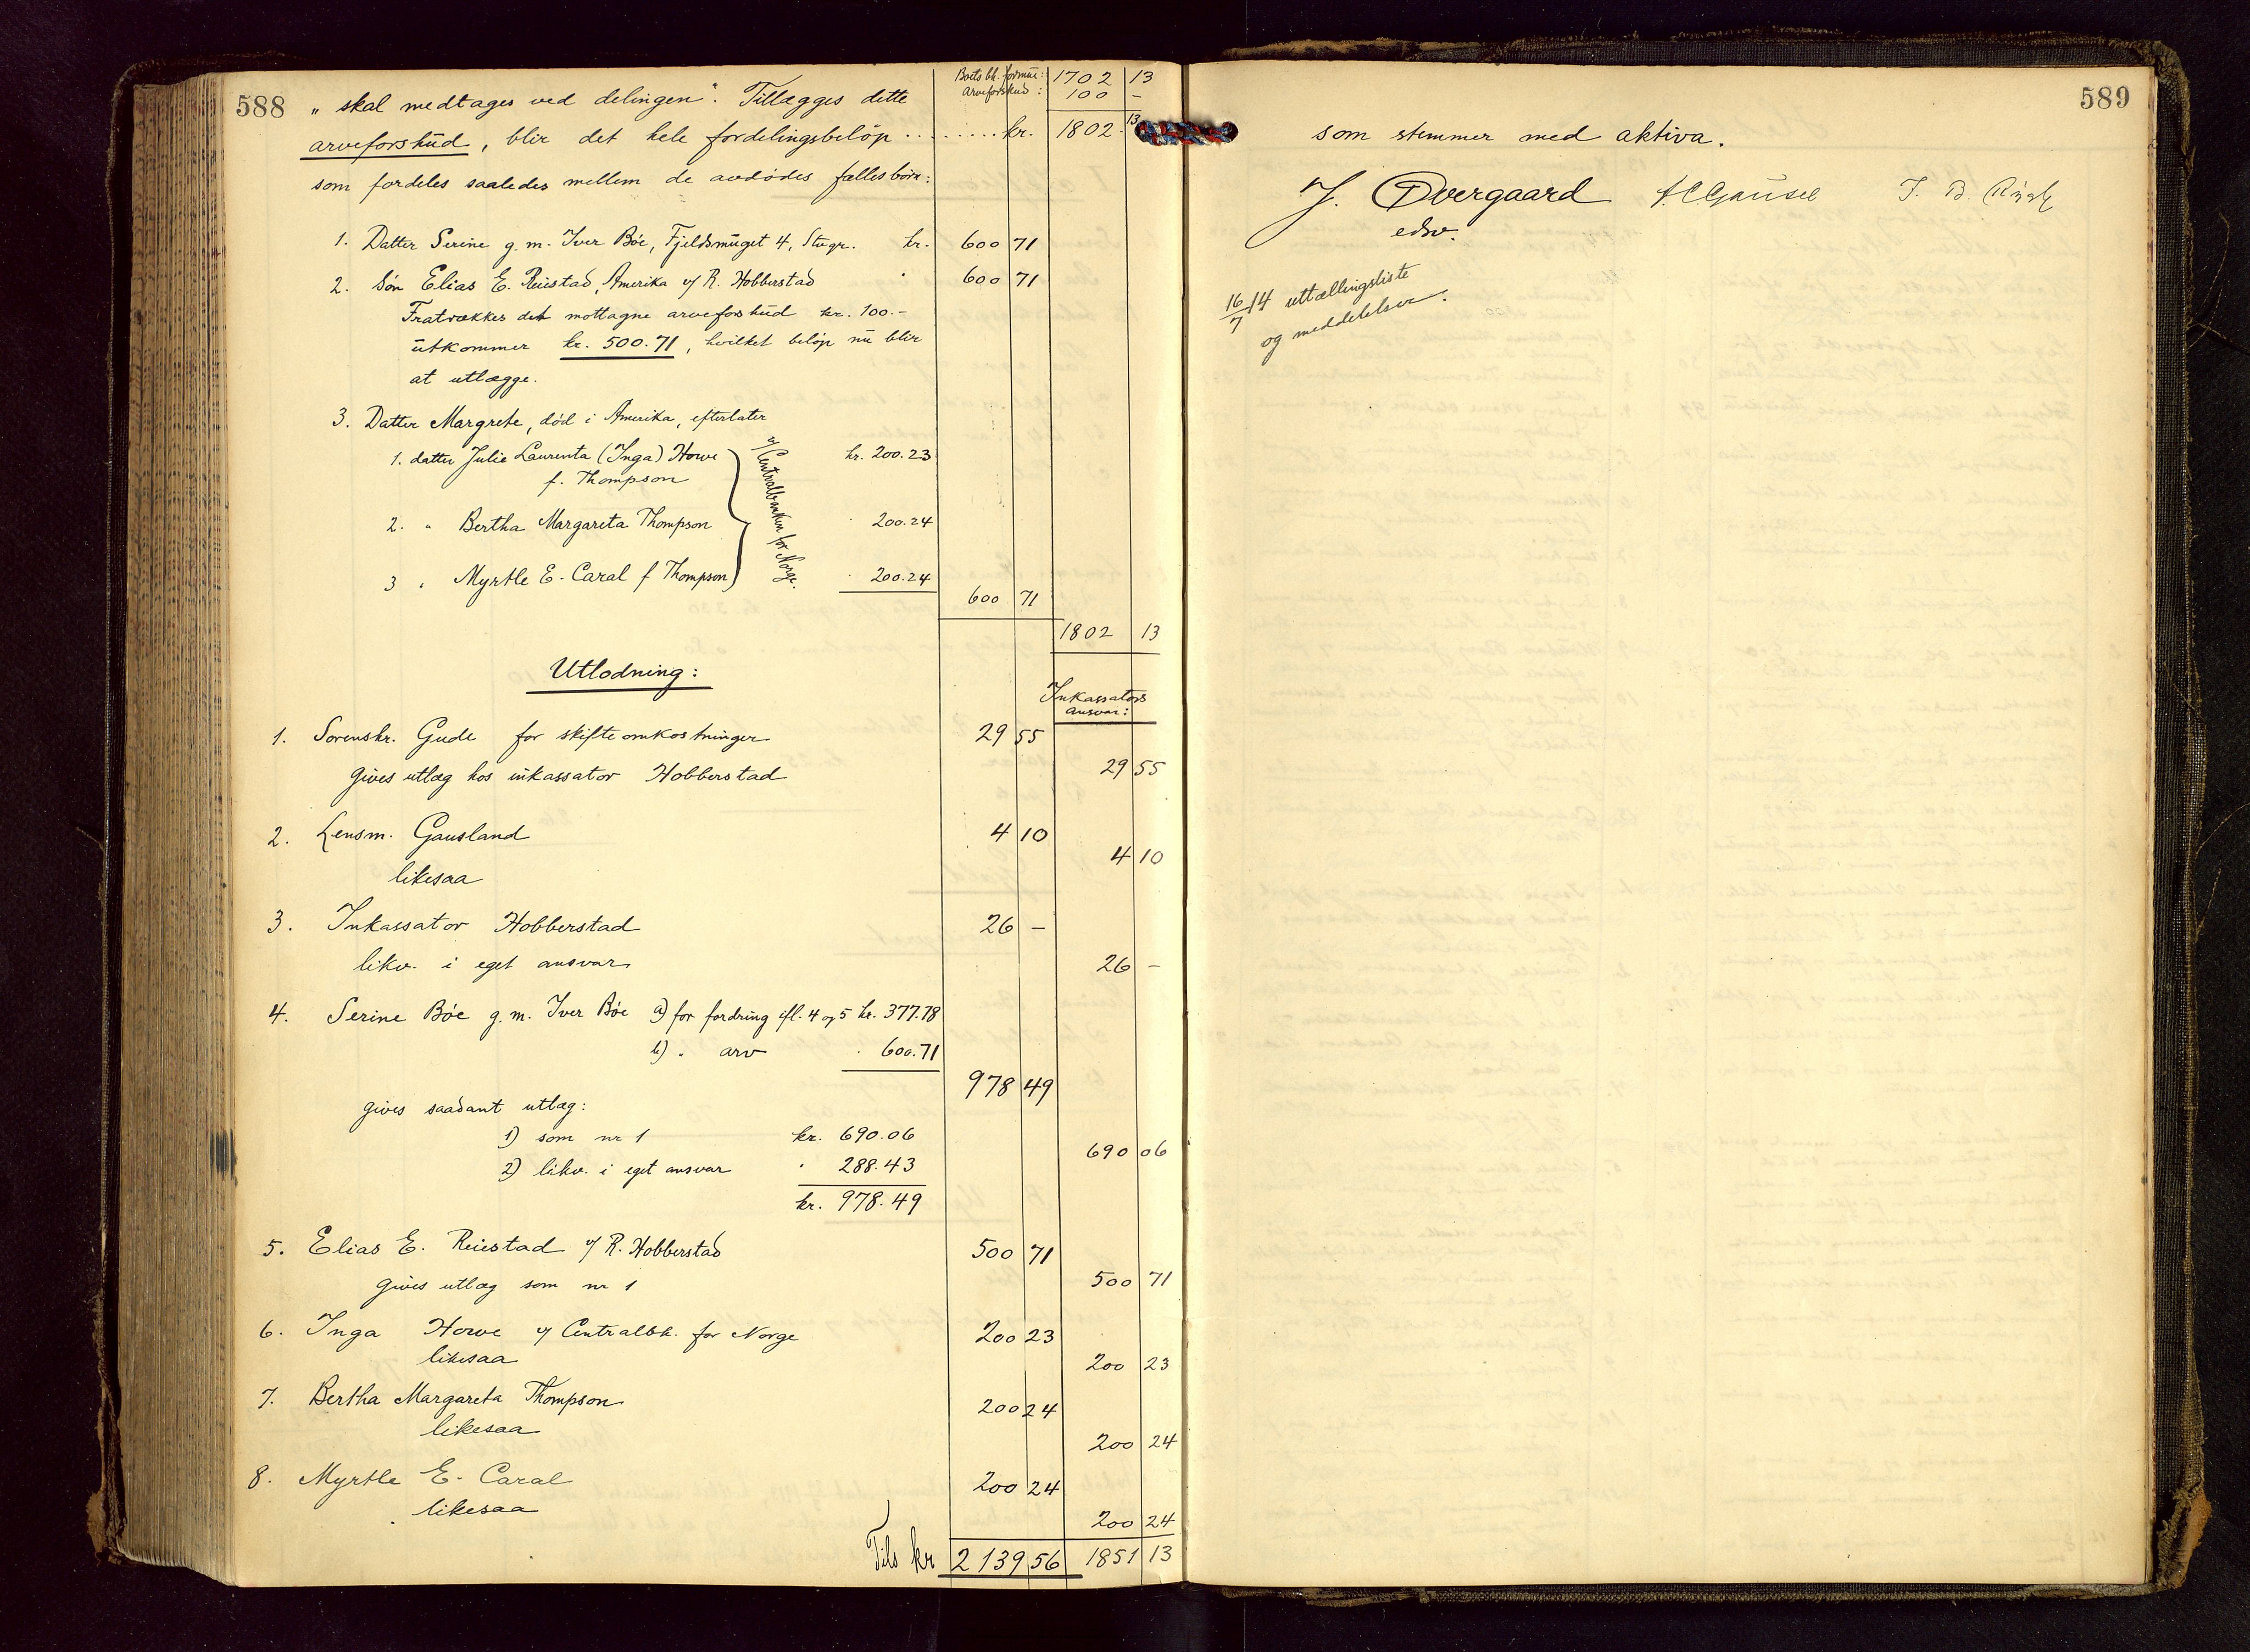 588
„ skal medtages ved delingen". Tillægges dette
Boets bh. formue: 1702 13
arveforskud: 100 –
arveforskud, blir det hele fordelingsbeløp ......... kr. 1802.13
som fordeles saaledes mellem de avdødes fællesbörn:
1. Datter Serine g. m. Iver Böe, Fjeldsmuget 4, Stvgr. kr. 600 71
2. Sön Elias E. Reiestad, Amerika v/ R. Hobberstad " 600 71
Fratrækkes det mottagne arveforskud kr. 100.–
utkommer kr. 500.71, hvilket beløp nu blir
at utlægge.
3. Datter Margrete, död i Amerika, efterlater
1. datter Julie Laurenta (Inga) Howe kr. 200.23
f. Thompson
2. " Bertha Margareta Thompson " 200.24
3 " Myrtle E. Caral f Thompson " 200.24
v/ Centralbanken for Norge.
600 71
1802 13
Utlodning:
Inkassators
ansvar:
1. Sorenskr. Gude for skifteomkostninger 29 55
gives utlæg hos inkassator Hobberstad 29 55
2. Lensm. Gausland 4 10
likesaa 4 10
3. Inkassator Hobberstad 26 –
likv. i eget ansvar 26 –
4. Serine Böe g. m. Iver Böe a) for fordring efl. 4 og 5 kr. 377.78
b) " arv " 600.71
978 49
gives saadant utlæg:
1) som nr 1 kr. 690.06 690 06
2) likv. i eget ansvar " 288.43
kr. 978.49
5. Elias E. Reiestad v/ R. Hobberstad 500 71
gives utlæg som nr 1 500 71
6. Inga Howe v/ Centralbk. for Norge 200 23
likesaa 200 23
7. Bertha Margareta Thompson 200 24
likesaa 200 24
8. Myrtle E. Caral 200 24
likesaa 200 24
Tils kr 2139 56 1851 13
589
som stemmer med aktiva.
J. Overgaard
edsv.
16/7 14 uttællingsliste
og meddelelser.